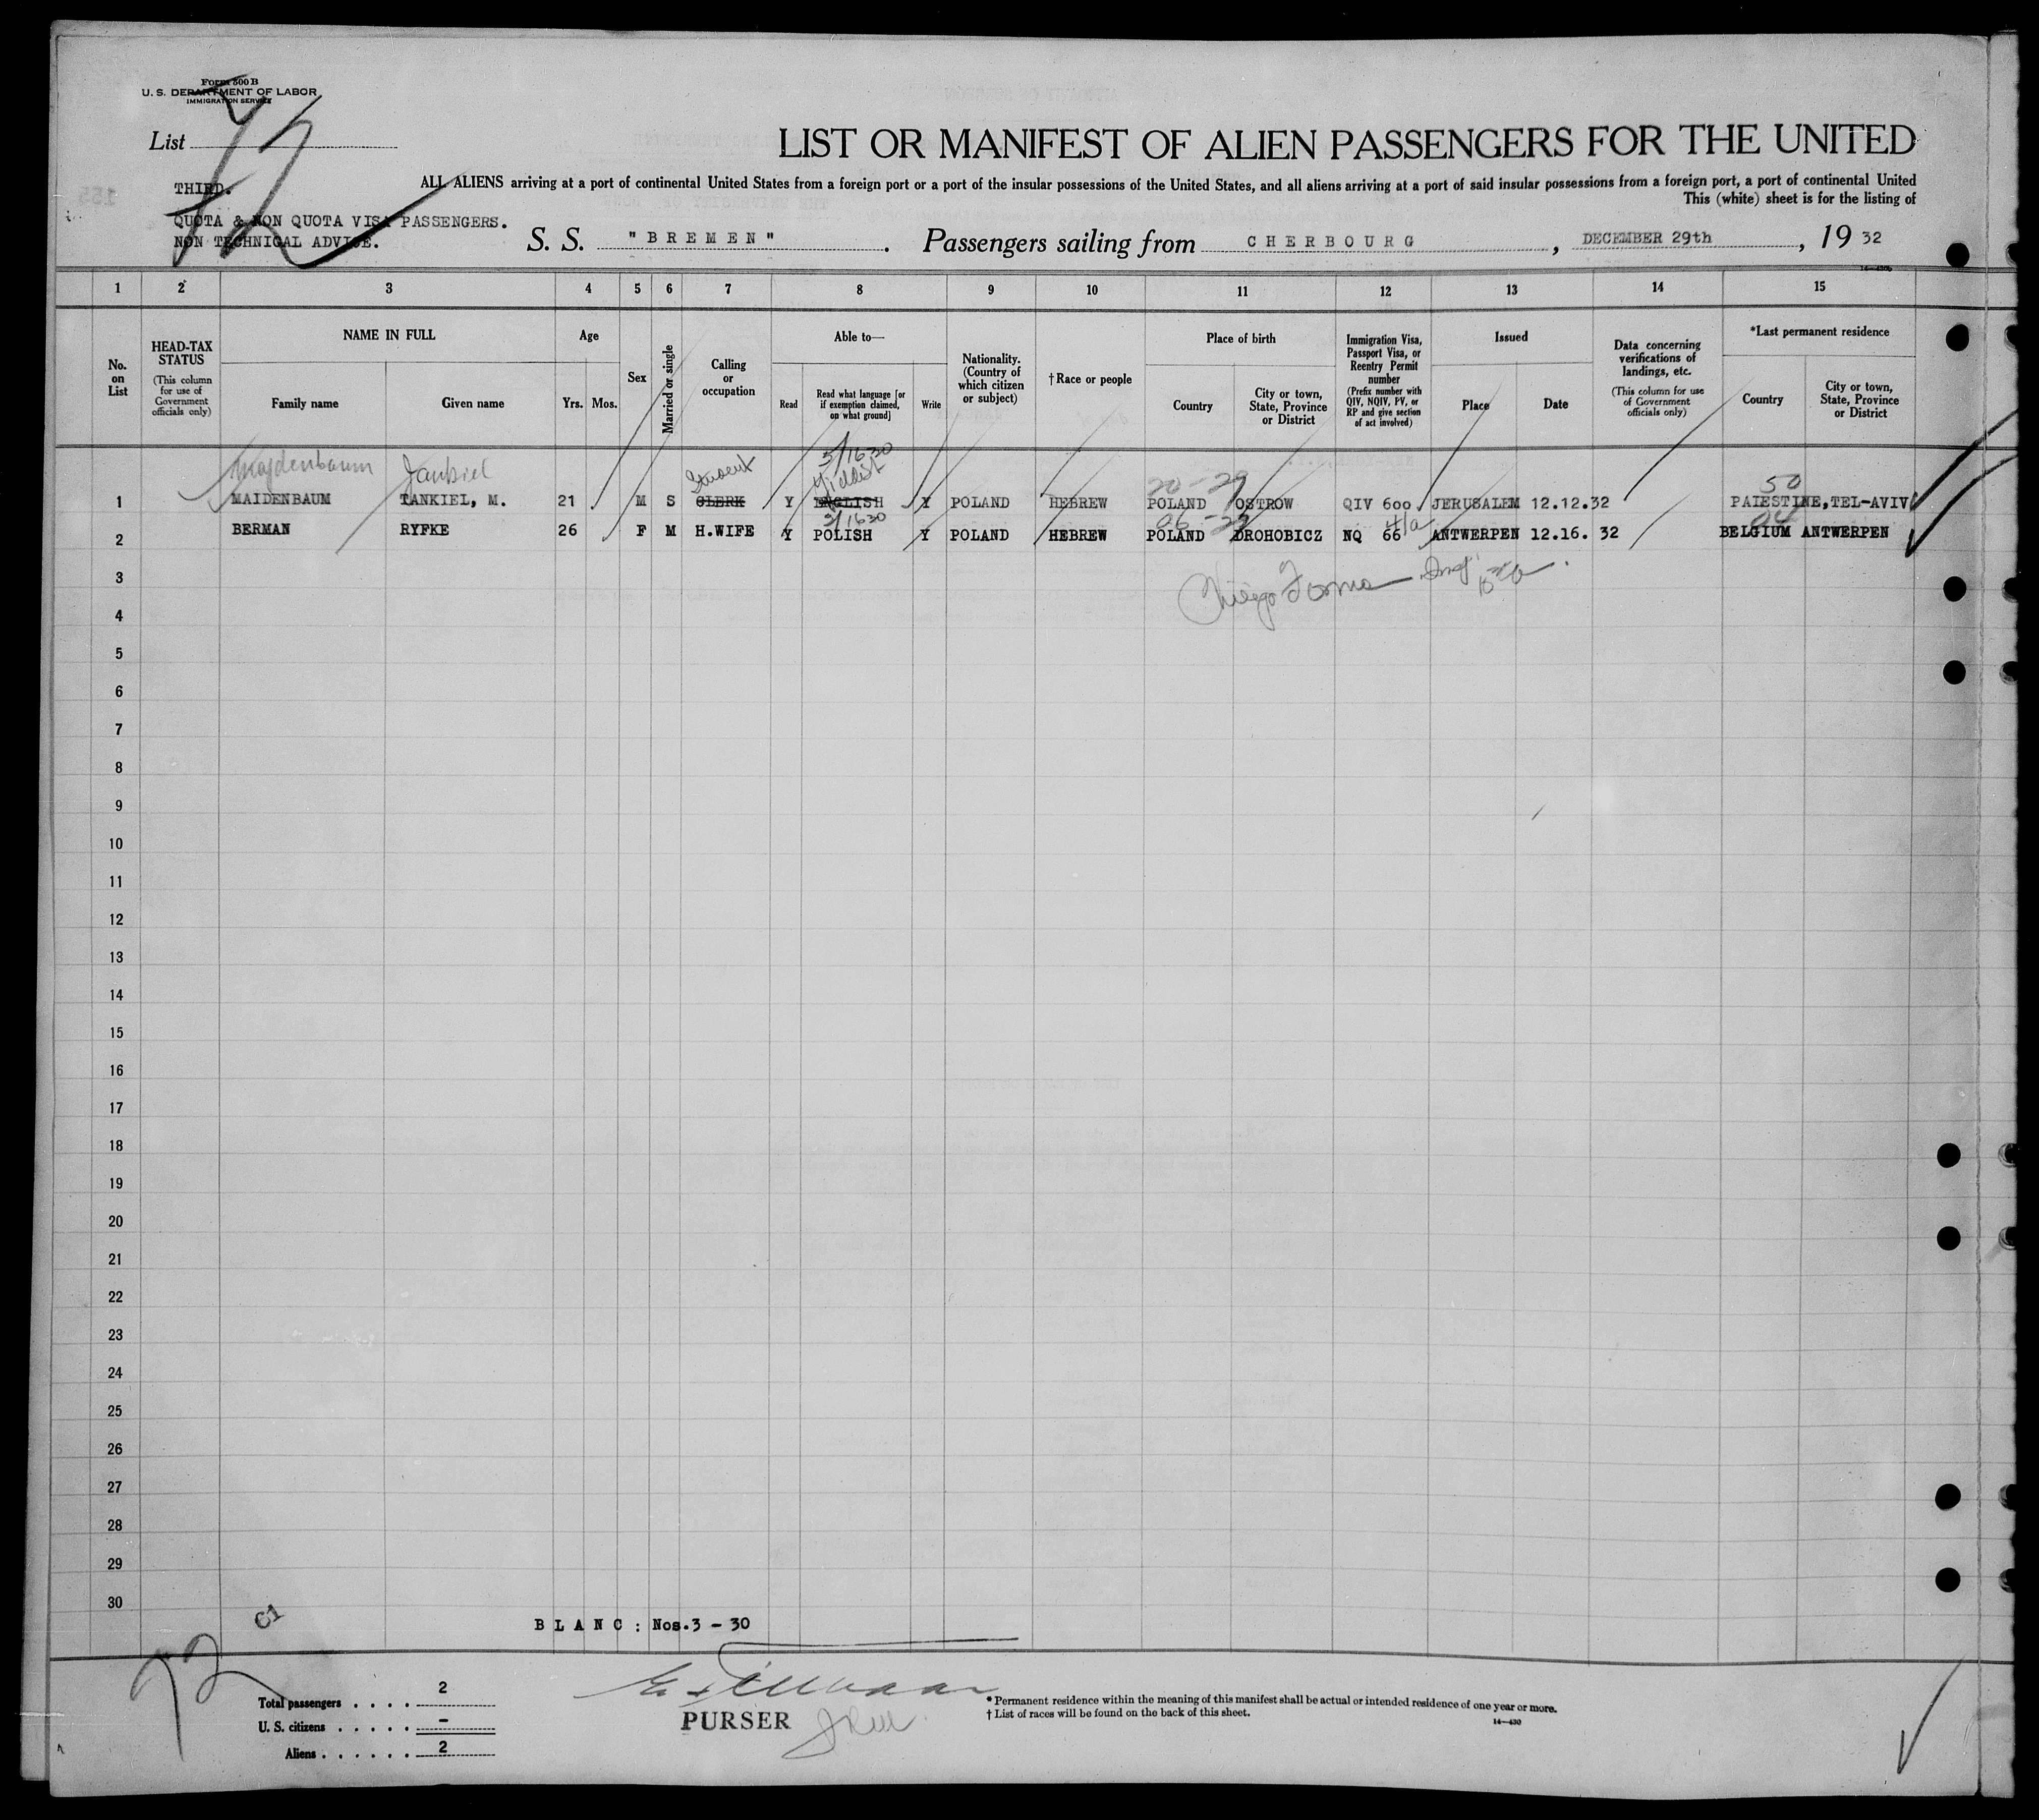 Form 500 B
U. S. DEPARTMENT OF LABOR
IMMIGRATION SERVICE
List
72
LIST OR MANIFEST OF ALIEN PASSENGERS FOR THE UNITED
THIRD.
ALL ALIENS arriving at a port of continental United States from a foreign port or a port of the insular possessions of the United States, and all aliens arriving at a port of said insular possessions from a foreign port, a port of continental United
This (white) sheet is for the listing of
QUOTA & NON QUOTA VISA PASSENGERS.
NON TECHNICAL ADVISE.
S. S. "BREMEN". Passengers sailing from CHERBOURG, DECEMBER 29th, 19 32
1 2 3 4 5 6 7 8 9 10 11 12 13 14 15
No. on List
HEAD-TAX STATUS
(This column for use of Government officials only)
NAME IN FULL
Family name Given name
Age
Yrs. Mos.
Sex
Married or single
Calling or occupation
Able to—
Read
Read what language [or if exemption claimed, on what ground]
Write
Nationality. (Country of which citizen or subject)
†Race or people
Place of birth
Country
City or town, State, Province or District
Immigration Visa, Passport Visa, or Reentry Permit number
(Prefix number with QIV, NQIV, PV, or RP and give section of act involved)
Issued
Place Date
Data concerning verifications of landings, etc.
(This column for use of Government officials only)
*Last permanent residence
Country
City or town, State, Province or District
Majdenbaum Jankiel Student 3/1630 Yiddish 20-29 50
1 MAIDENBAUM TANKIEL, M. 21 M S CLERK Y ENGLISH Y POLAND HEBREW POLAND OSTROW QIV 600 JERUSALEM 12.12.32 PALESTINE, TEL-AVIV
3/1630 06-29 4/a 04
2 BERMAN RYFKE 26 F M H.WIFE Y POLISH Y POLAND HEBREW POLAND DROHOBICZ NQ 66 ANTWERPEN 12.16. 32 BELGIUM ANTWERPEN
3
4
5
6
7
8
9
10
11
12
13
14
15
16
17
18
19
20
21
22
23
24
25
26
27
28
29
30
BLANC: Nos.3 - 30
72
Total passengers . . . . 2
U. S. citizens . . . . . -
Aliens . . . . . . 2
PURSER
* Permanent residence within the meaning of this manifest shall be actual or intended residence of one year or more.
† List of races will be found on the back of this sheet.
14—430